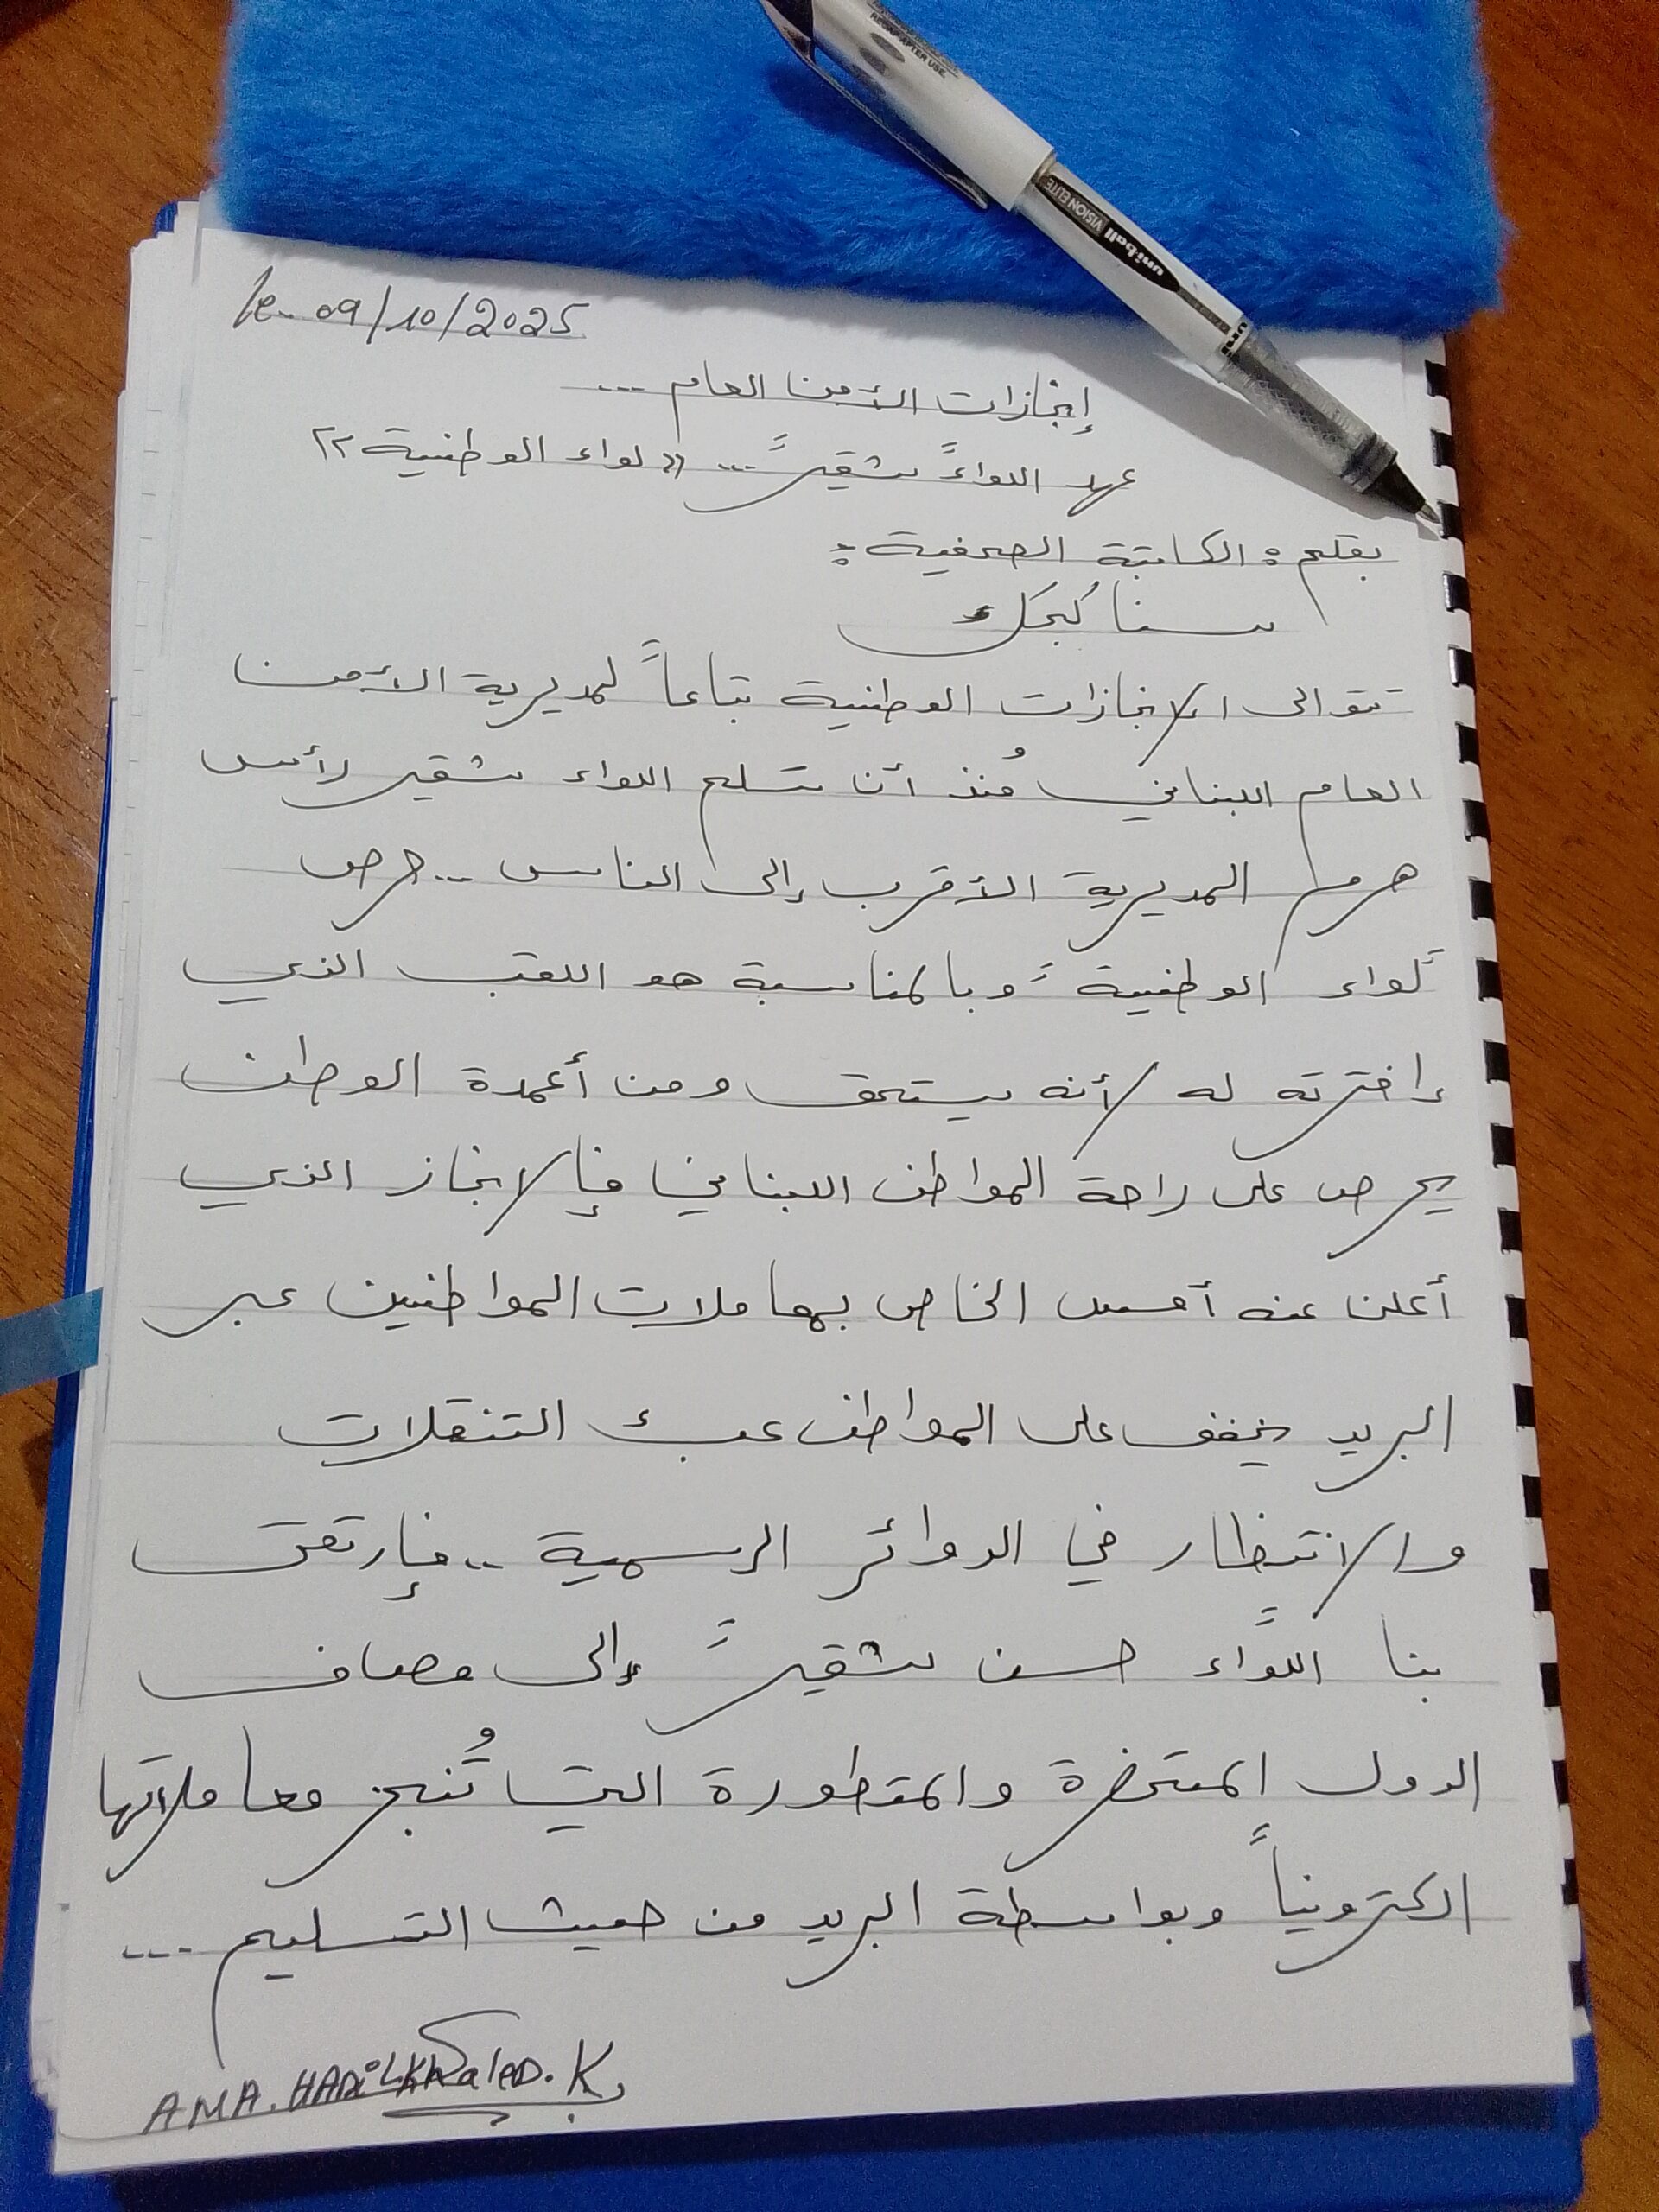 RECAP AFTER USE.
uni-ball VISION ELITE
le 09/10/2025
إنجازات الأمن العام ...
عهد اللواء "شقير" ... «لواء الوطنية»
بقلم : الكاتبة الصحفية :
سنا كجك
تتوالى الإنجازات الوطنية تباعاً لمديرية الأمن
العام اللبناني مُنذ أن تسلم اللواء شقير لأس
هرم المديرية الأقرب إلى الناس .. حرص
"لواء الوطنية" وبالمناسبة هو اللقب الذي
إخترته له لأنه يستحق ومن أعمدة الوطن
يحرص على راحة المواطن اللبناني فإلانجاز الذي
أعلن عنه أمس الخاص بمعاملات المواطنين عبر
البريد يخفف على المواطن عبء التنقلات
والانتظار في الدوائر الرسمية .. فإرتقى
بنا اللواء "حسن شقير" إلى مصاف
الدول المتحضرة والمتطورة التي تُنجز معاملاتها
الكترونياً وبواسطة البريد من حيث التسليم ...
AMA. HADiL KHaleD. K